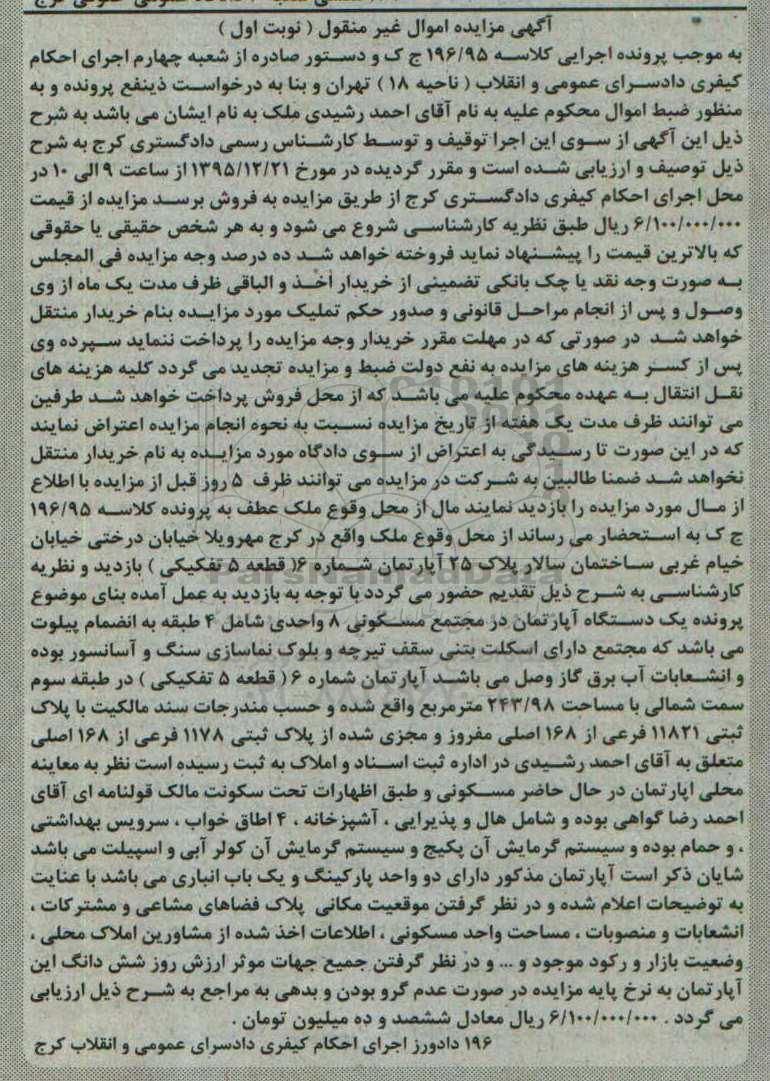 آگهی مزایده اموال غیر منقول ( نوبت اول )
به موجب پرونده اجرایی کلاسه ۱۹۶/۹۵ ج ک و دستور صادره از شعبه چهارم اجرای احکام
کیفری دادسرای عمومی و انقلاب ( ناحیه ۱۸ ) تهران و بنا به درخواست ذینفع پرونده و به
منظور ضبط اموال محکوم علیه به نام آقای احمد رشیدی ملک به نام ایشان می باشد به شرح
ذیل این آگهی از سوی این اجرا توقیف و توسط کارشناس رسمی دادگستری کرج به شرح
ذیل توصیف و ارزیابی شده است و مقرر گردیده در مورخ ۱۳۹۵/۱۲/۲۱ از ساعت ۹ الی ۱۰ در
محل اجرای احکام کیفری دادگستری کرج از طریق مزایده به فروش برسد مزایده از قیمت
۶/۱۰۰/۰۰۰/۰۰۰ ریال طبق نظریه کارشناسی شروع می شود و به هر شخص حقیقی یا حقوقی
که بالاترین قیمت را پیشنهاد نماید فروخته خواهد شد ده درصد وجه مزایده فی المجلس
به صورت وجه نقد یا چک بانکی تضمینی از خریدار اخذ و الباقی ظرف مدت یک ماه از وی
وصول و پس از انجام مراحل قانونی و صدور حکم تملیک مورد مزایده بنام خریدار منتقل
خواهد شد در صورتی که در مهلت مقرر خریدار وجه مزایده را پرداخت ننماید سپرده وی
پس از کسر هزینه های مزایده به نفع دولت ضبط و مزایده تجدید می گردد کلیه هزینه های
نقل انتقال به عهده محکوم علیه می باشد که از محل فروش پرداخت خواهد شد طرفین
می توانند ظرف مدت یک هفته از تاریخ مزایده نسبت به نحوه انجام مزایده اعتراض نمایند
که در این صورت تا رسیدگی به اعتراض از سوی دادگاه مورد مزایده به نام خریدار منتقل
نخواهد شد ضمنا طالبین به شرکت در مزایده می توانند ظرف ۵ روز قبل از مزایده با اطلاع
از مال مورد مزایده را بازدید نمایند مال از محل وقوع ملک عطف به پرونده کلاسه ۱۹۶/۹۵
ج ک به استحضار می رساند از محل وقوع ملک واقع در کرج مهرویلا خیابان درختی خیابان
خیام غربی ساختمان سالار پلاک ۲۵ آپارتمان شماره ۶( قطعه ۵ تفکیکی ) بازدید و نظریه
کارشناسی به شرح ذیل تقدیم حضور می گردد با توجه به بازدید به عمل آمده بنای موضوع
پرونده یک دستگاه آپارتمان در مجتمع مسکونی ۸ واحدی شامل ۴ طبقه به انضمام پیلوت
می باشد که مجتمع دارای اسکلت بتنی سقف تیرچه و بلوک نماسازی سنگ و آسانسور بوده
و انشعابات آب برق گاز وصل می باشد آپارتمان شماره ۶ ( قطعه ۵ تفکیکی ) در طبقه سوم
سمت شمالی با مساحت ۲۴۳/۹۸ مترمربع واقع شده و حسب مندرجات سند مالکیت با پلاک
ثبتی ۱۱۸۲۱ فرعی از ۱۶۸ اصلی مفروز و مجزی شده از پلاک ثبتی ۱۱۷۸ فرعی از ۱۶۸ اصلی
متعلق به آقای احمد رشیدی در اداره ثبت اسناد و املاک به ثبت رسیده است نظر به معاینه
محلی اپارتمان در حال حاضر مسکونی و طبق اظهارات تحت سکونت مالک قولنامه ای آقای
احمد رضا گواهی بوده و شامل هال و پذیرایی ، آشپزخانه ، ۴ اطاق خواب ، سرویس بهداشتی
، و حمام بوده و سیستم گرمایش آن پکیج و سیستم گرمایش آن کولر آبی و اسپیلت می باشد
شایان ذکر است آپارتمان مذکور دارای دو واحد پارکینگ و یک باب انباری می باشد با عنایت
به توضیحات اعلام شده و در نظر گرفتن موقعیت مکانی پلاک فضاهای مشاعی و مشترکات ،
انشعابات و منصوبات ، مساحت واحد مسکونی ، اطلاعات اخذ شده از مشاورین املاک محلی ،
وضعیت بازار و رکود موجود و ... و در نظر گرفتن جمیع جهات موثر ارزش روز شش دانگ این
آپارتمان به نرخ پایه مزایده در صورت عدم گرو بودن و بدهی به مراجع به شرح ذیل ارزیابی
می گردد . ۶/۱۰۰/۰۰۰/۰۰۰ ریال معادل ششصد و ده میلیون تومان .
۱۹۶ دادورز اجرای احکام کیفری دادسرای عمومی و انقلاب کرج
ParsNamadData